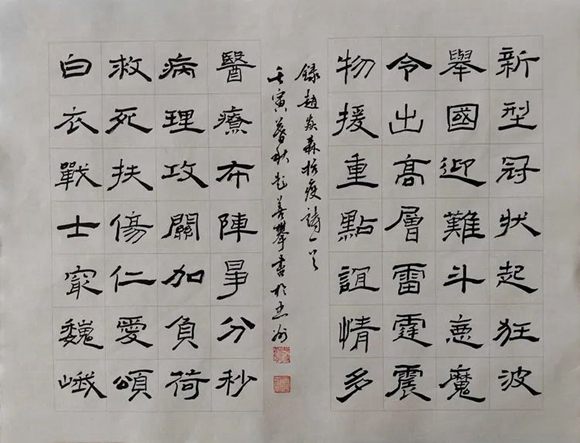 新型冠狀起狂波
舉國迎難斗恶魔
令出高層雷霆震
物援重點誼情多
録趙焱森抗疫詩一首
壬寅暮秋善攀書於
醫療布陣爭分秒
病理攻關加負荷
救死扶傷仁愛頌
白衣戰士冣巍峨